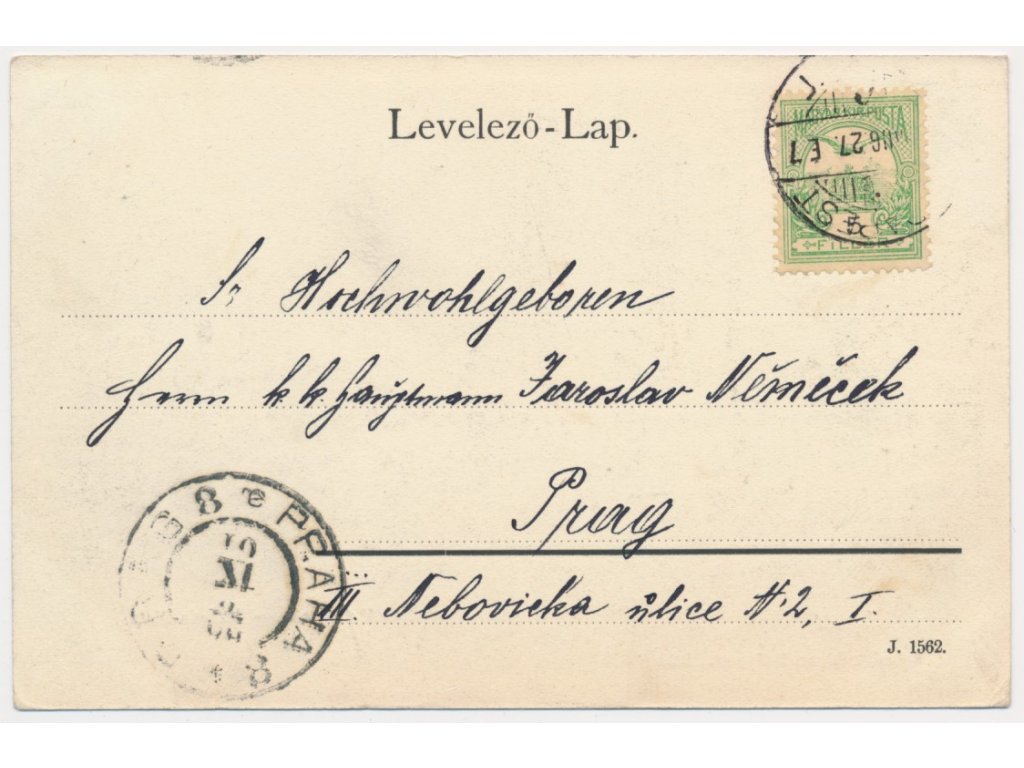 Levelező-Lap.
MAGYAR KIR. POSTA
AUG 27. E 7
5
FILLÉR
Sr Hochwohlgeboren
Herrn k. k. Hauptmann Jaroslav Němeček
Prag
III Nebovicka ůlice N: 2, I.
PRAG 8 e PRAHA 8
J. 1562.